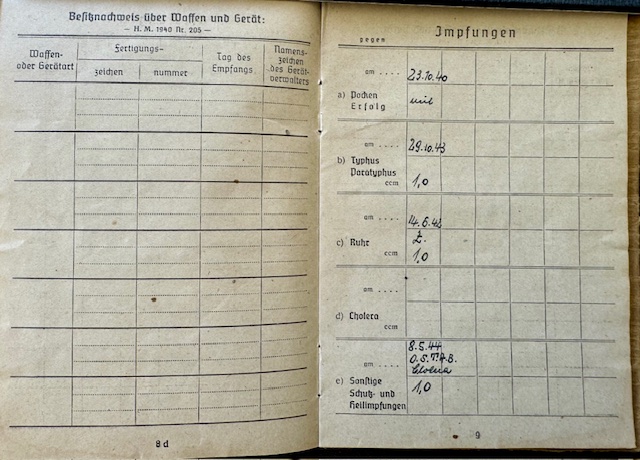 Besitznachweis über Waffen und Gerät:
— H. M. 1940 Nr. 205 —
Waffen-
oder Gerätart
Fertigungs-
zeichen
nummer
Tag des
Empfangs
Namens-
zeichen
des Gerät-
verwalters
8 d
Impfungen
gegen
am ....
23.10.40
a) Pocken
Erfolg
mit
am ....
29.10.43
b) Typhus
Paratyphus
ccm
1,0
am ....
c) Ruhr
ccm
1,0
am ....
d) Cholera
ccm
8.5.44
am ....
Cholera
e) Sonstige
Schutz- und
Heilimpfungen
1,0
9